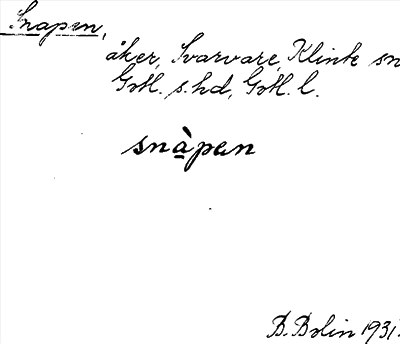 Snapen,
åker, Svarvare, Klinte sn
Gotl. s. hd, Gotl. l.
snàpen
B. Bolin 1931.